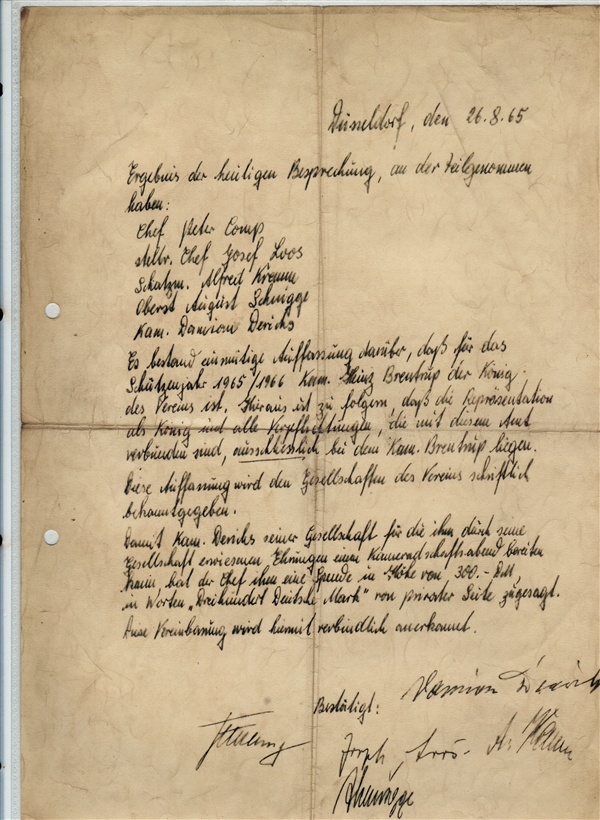 Düsseldorf, den 26.8.65
Ergebnis der heutigen Besprechung, an der teilgenommen
haben:
Chef Peter Comp
stellv. Chef Josef Loos
Schatzm. Alfred Kremm
Oberst August Schnigge
Kam. Damian Derichs
Es bestand einmütige Auffassung darüber, daß für das
Schützenjahr 1965/1966 Kam. Heinz Brentrup der König
des Vereins ist. Hieraus ist zu folgern, daß die Repräsentation
als König und alle Verpflichtungen, die mit diesem Amt
verbunden sind, ausschliesslich bei dem Kam. Brentrup liegen.
Diese Auffassung wird den Gesellschaften des Vereins schriftlich
bekanntgegeben.
Damit Kam. Derichs seiner Gesellschaft für die ihm durch seine
Gesellschaft erwiesenen Ehrungen einen Kameradschaftsabend bereiten
kann, hat der Chef ihm eine Spende in Höhe von 300.- DM,
in Worten "Dreihundert Deutsche Mark" von privater Seite zugesagt.
Diese Vereinbarung wird hiermit verbindlich anerkannt.
Bestätigt: Damian Derichs
Joseph Loos